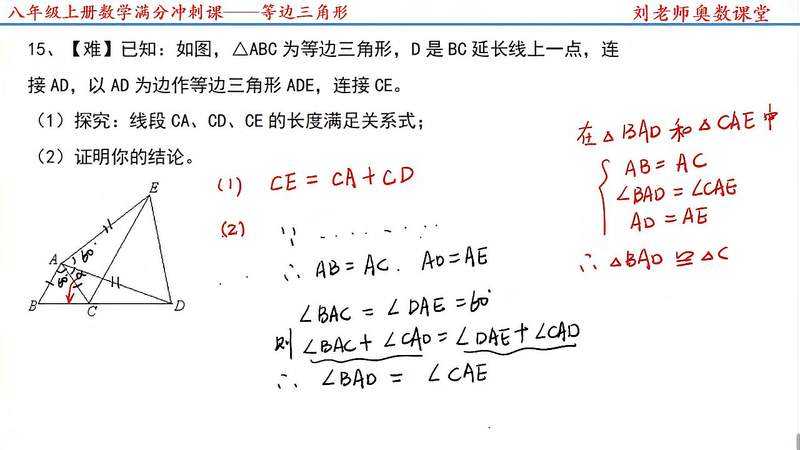 八年级上册数学满分冲刺课——等边三角形
刘老师奥数课堂
15、【难】已知：如图，△ABC 为等边三角形，D 是 BC 延长线上一点，连
接 AD，以 AD 为边作等边三角形 ADE，连接 CE。
（1）探究：线段 CA、CD、CE 的长度满足关系式；
（2）证明你的结论。
(1) CE = CA + CD
(2) ∵ ......
∴ AB = AC. AD = AE
∠BAC = ∠DAE = 60°
则 ∠BAC + ∠CAD = ∠DAE + ∠CAD
∴ ∠BAD = ∠CAE
在 △BAD 和 △CAE 中
AB = AC
∠BAD = ∠CAE
AD = AE
∴ △BAD ≌ △C
E
A 60°
60°
B C D